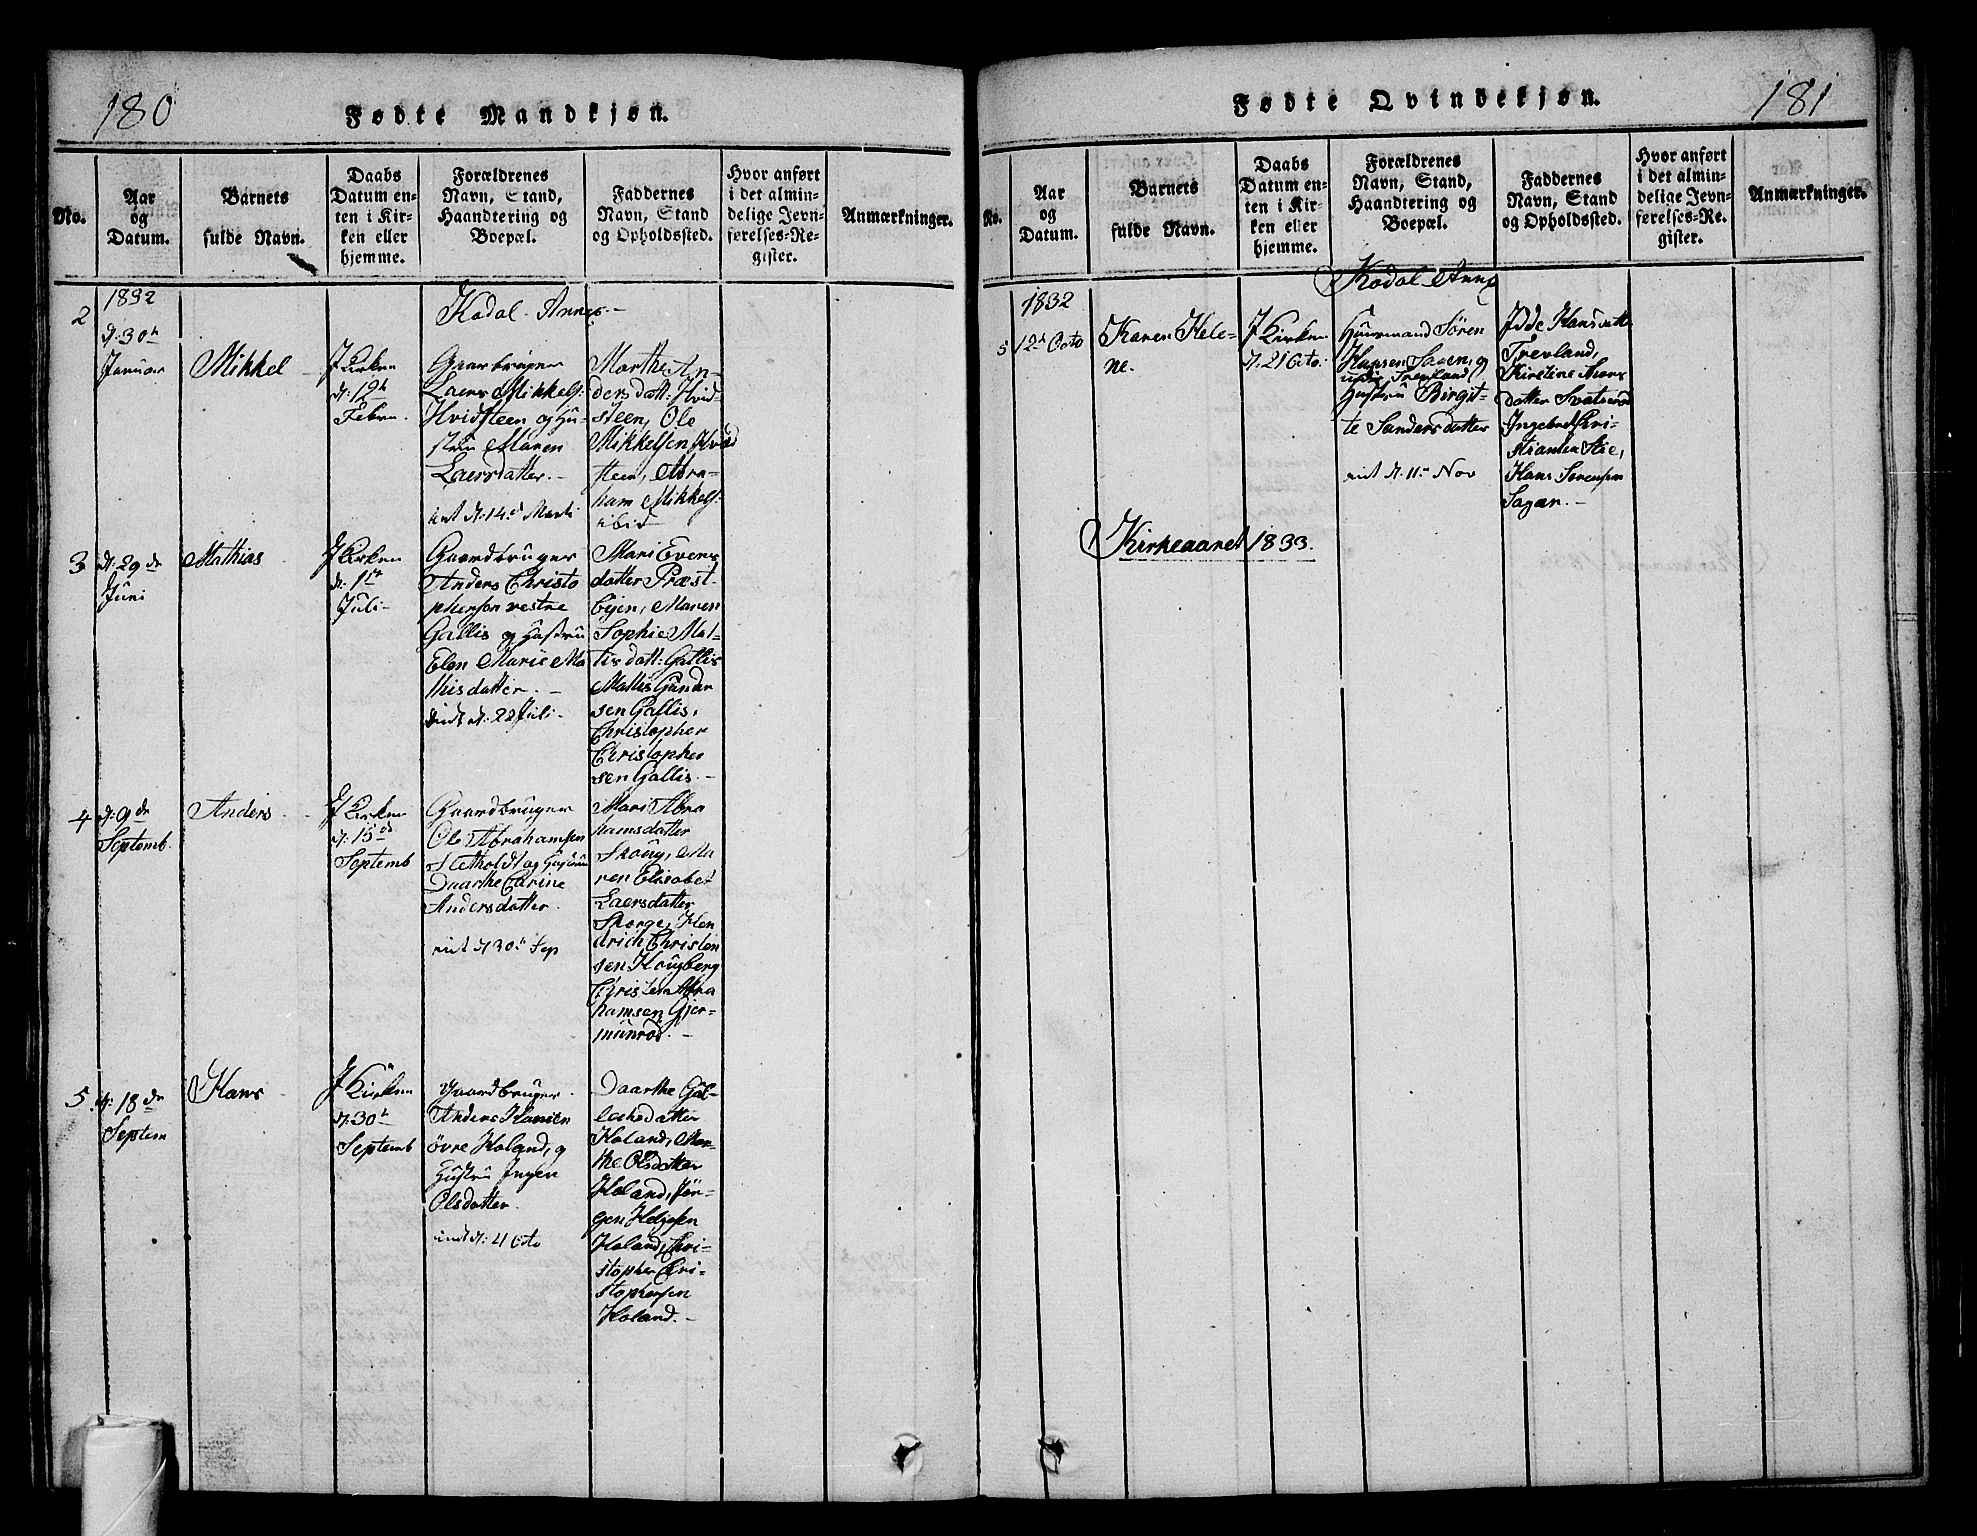 180
Fødte Mandkjøn.
No.
Aar
og
Datum.
Barnets
fulde Navn.
Daabs
Datum en-
ten i Kir-
ken eller
hjemme.
Forældrenes
Navn, Stand,
Haandtering og
Boepæl.
Faddernes
Navn, Stand
og Opholdssted.
Hvor anført
i det almin-
delige Jevn-
førelses-Re-
gister.
Anmærkninger.
Kodal Annex.
2
1832
d. 30te
Januar
Mikkel
I Kirken
d. 19de
Febru.
Gaardbruger
Laers Mikkels:
Hvidsteen og Hu-
stru Maren
Laersdatter. –
int d. 14de Marti
Marthe An-
ders datt: Hvid-
steen, Ole
Mikkelsen Hvid
steen, Abra-
ham Mikkels:
ibid
3
d. 29de
Juni
Mathias
I Kirken
d. 1ste
Juli
Gaardbruger
Anders Christo
phersen vestre
Gallis og Hustru
Elen Marie Ma
thisdatter. –
int d. 22 Juli
Mari Evens
datter Præst-
byen, Maren
Sophie Mat-
tis datt: Gallis
Mattis Gunder
sen Gallis,
Christopher
Christopher
sen Gallis. –
4
d. 9de
Septemb.
Anders
I Kirken
d. 15de
Septemb
Gaardbruger
Ole Abrahamsen
Sletholdt og Hustru
Daarthe Carine
Andersdatter.
int d. 30te Sep
Mari Abra
hamsdatter
Skoug, Ma
ren Elisabet
Laersdatter
Skorge, Hen
drich Christen
sen Hougberg
Christen Abra
hamsen Gjer-
munrød. –
5.
d. 18de
Septem
Hans
I Kirken
d. 30te
Septemb
Gaardbruger
Anders Hansen
øvre Holand, og
Hustru Inger
Olsdatter.
int d. 4 Octo
Daarthe Gul-
leksdatter
Holand, Mar-
the Olsdatter
Holand, Jør-
gen Helgesen
Holand, Chri-
stopher Chri-
stophersen
Holand. –
181
Fødte Qvindekjøn.
No.
Aar
og
Datum.
Barnets
fulde Navn.
Daabs
Datum en-
ten i Kir-
ken eller
hjemme.
Forældrenes
Navn, Stand,
Haandtering og
Boepæl.
Faddernes
Navn, Stand
og Opholdssted.
Hvor anført
i det almin-
delige Jevn-
førelses-Re-
gister.
Anmærkninger.
Kodal Annex
5
1832
12te Octo
Karen Hele-
ne.
I Kirken
d. 21 Octo:
Huusmand Sören
Hansen Sagen, og
Hustru Birgit-
te Sandersdatter
int d. 11te Nov
Idde Hansdatt:
Trevland,
Kirstine Ams
datter Svatserød
Ingebret Kri-
stiansen Stie,
Hans Sörensen
Sagen. –
Kirkeaaret 1833.